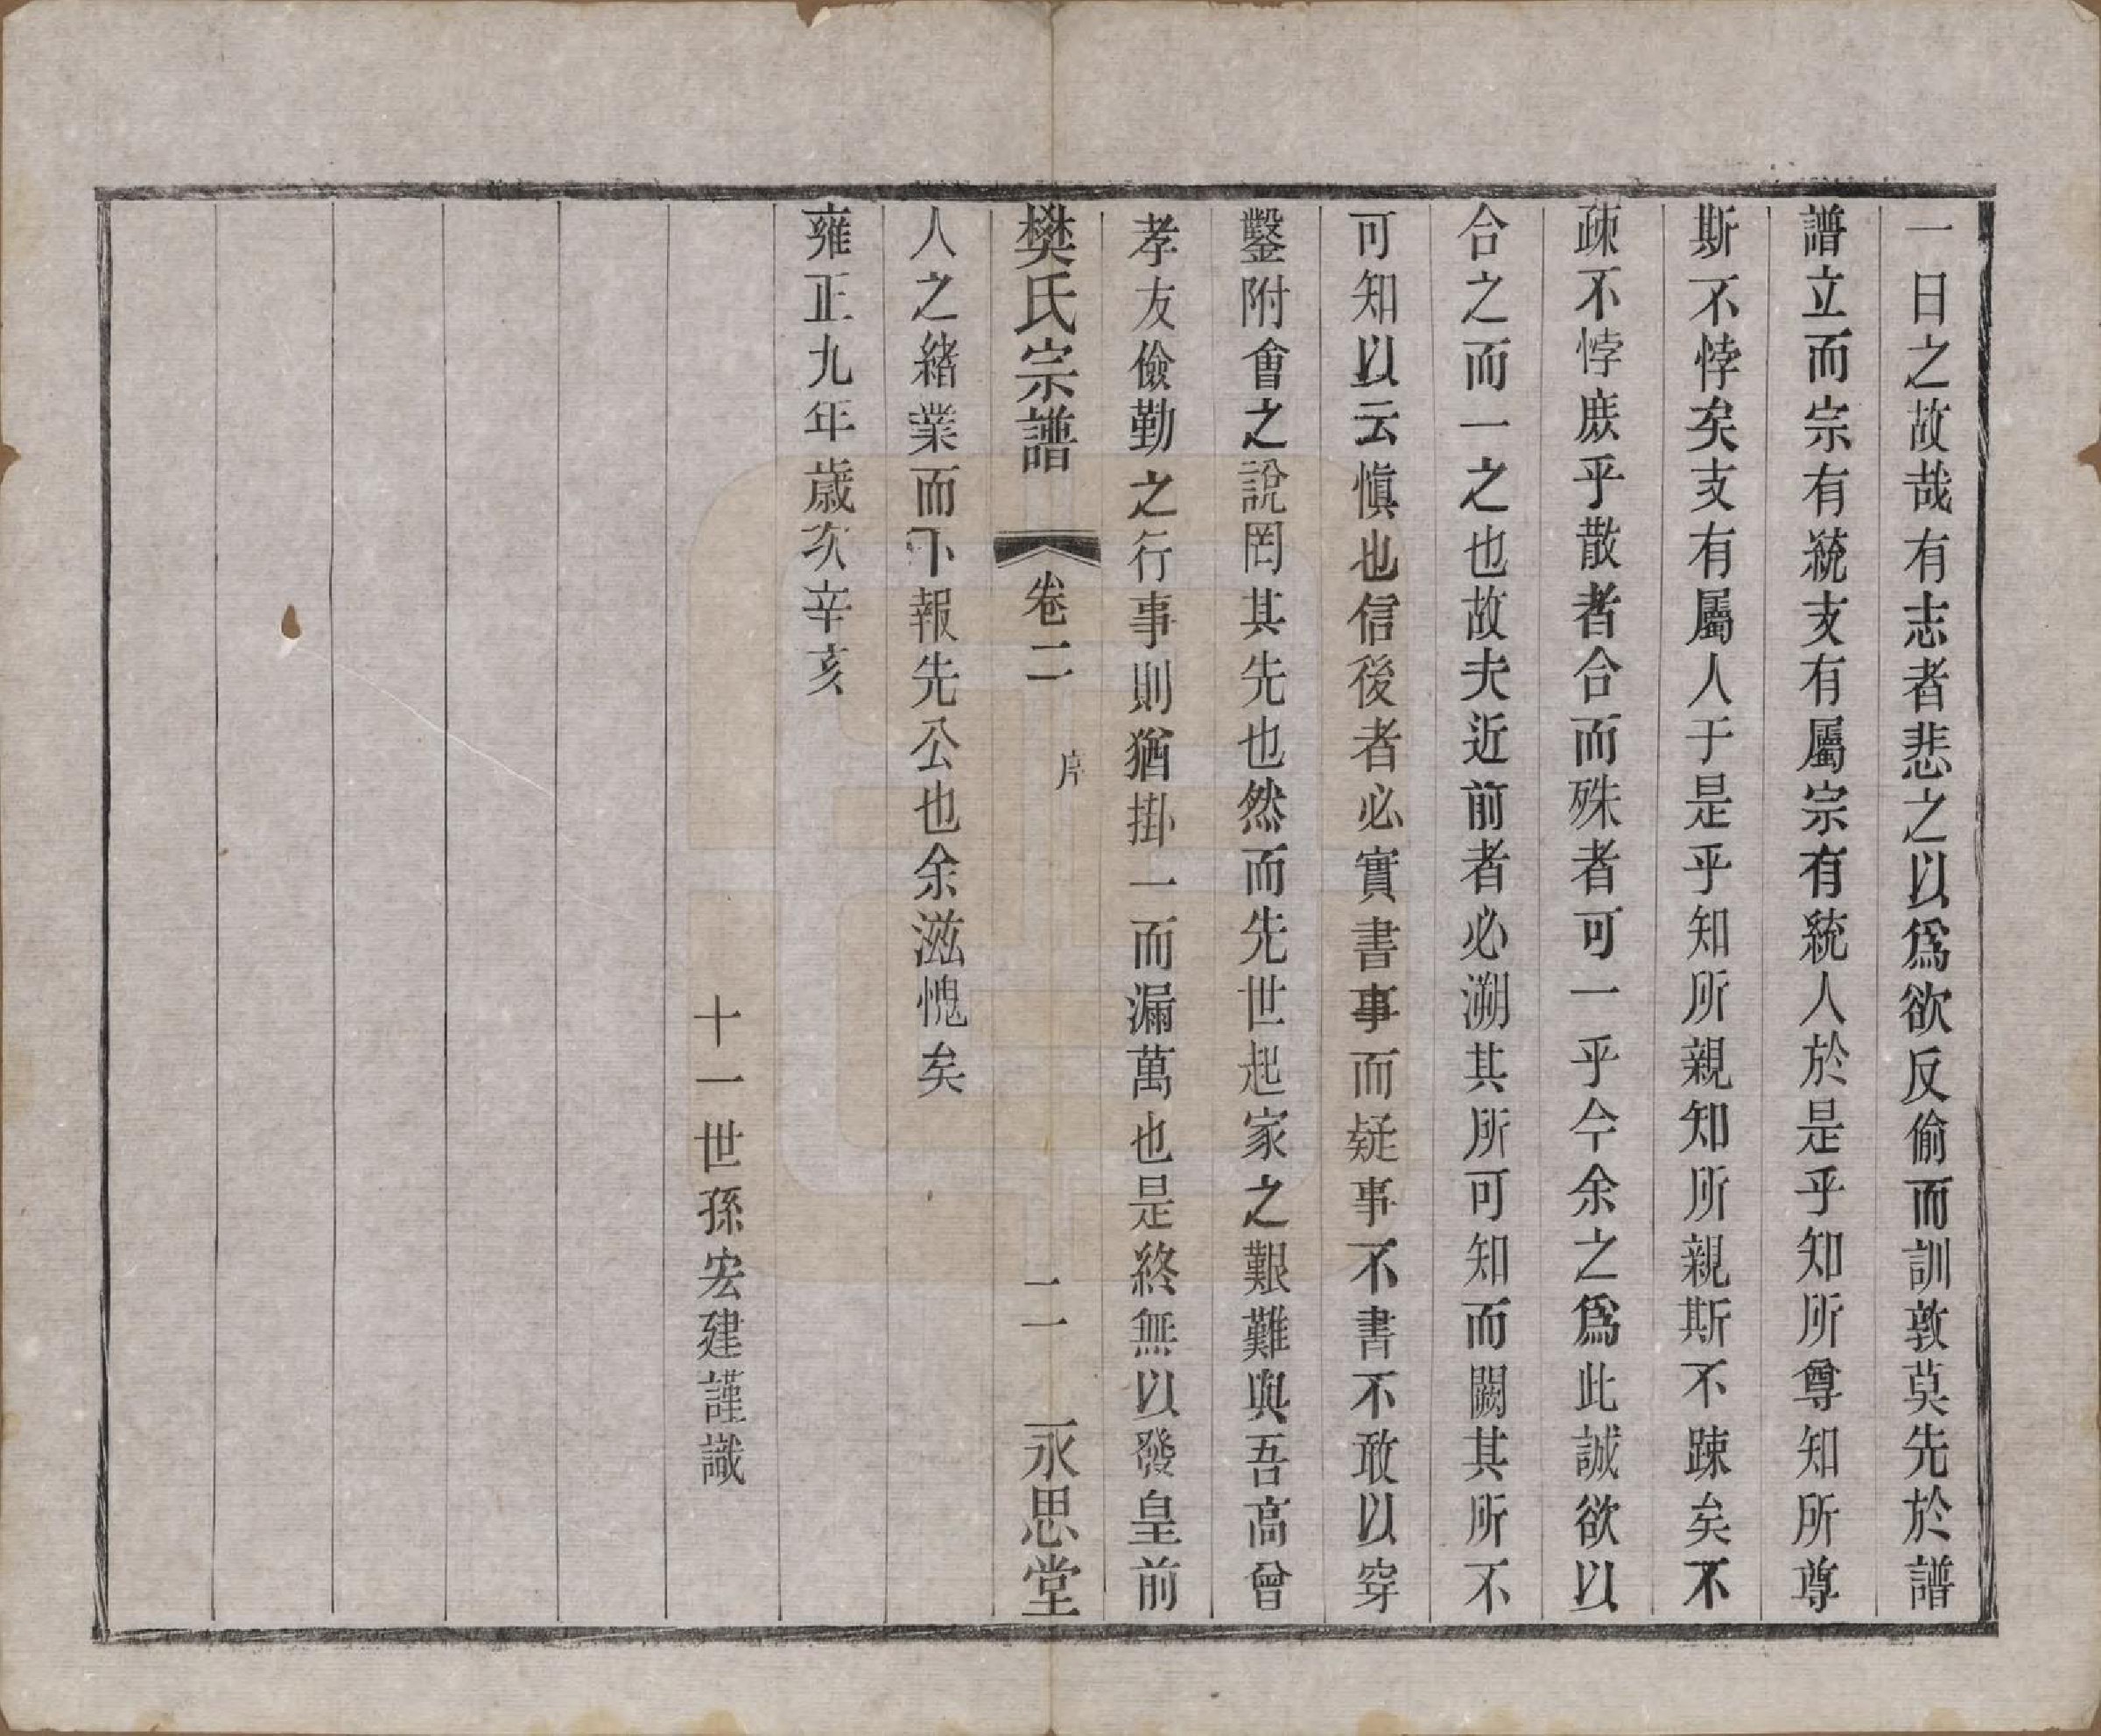 一日之故哉有志者悲之以爲欲反偷而訓敦莫先於譜
譜立而宗有統支有屬宗有統人於是乎知所尊知所尊
斯不悖矣支有屬人于是乎知所親知所親斯不踈矣不
疎不悖庶乎散者合而殊者可一乎今余之爲此誠欲以
合之而一之也故夫近前者必溯其所可知而闕其所不
可知以云愼也信後者必實書事而疑事不書不敢以穿
鑿附會之說罔其先也然而先世起家之艱難與吾高曾
孝友儉勤之行事則猶掛一而漏萬也是終無以發皇前
樊氏宗譜 卷二 序 二 永思堂
人之緒業而下報先公也余滋愧矣
雍正九年歲次辛亥
十一世孫宏建謹識